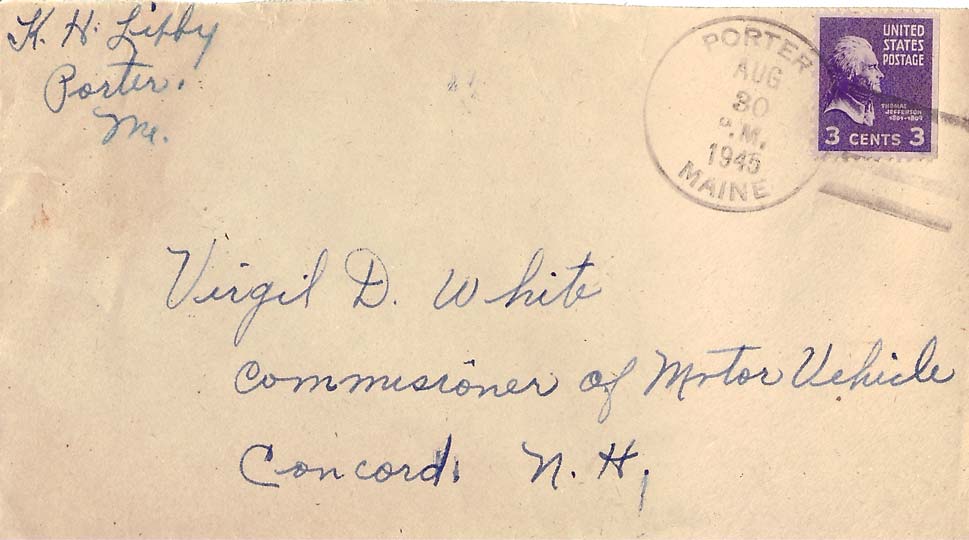 K. H. Libby
Porter.
Me.
PORTER
AUG
30
P.M.
1945
MAINE
UNITED
STATES
POSTAGE
THOMAS
JEFFERSON
1801-1809
3 CENTS 3
Virgil D. White
Commisioner of Motor Vehicle
Concord. N. H,